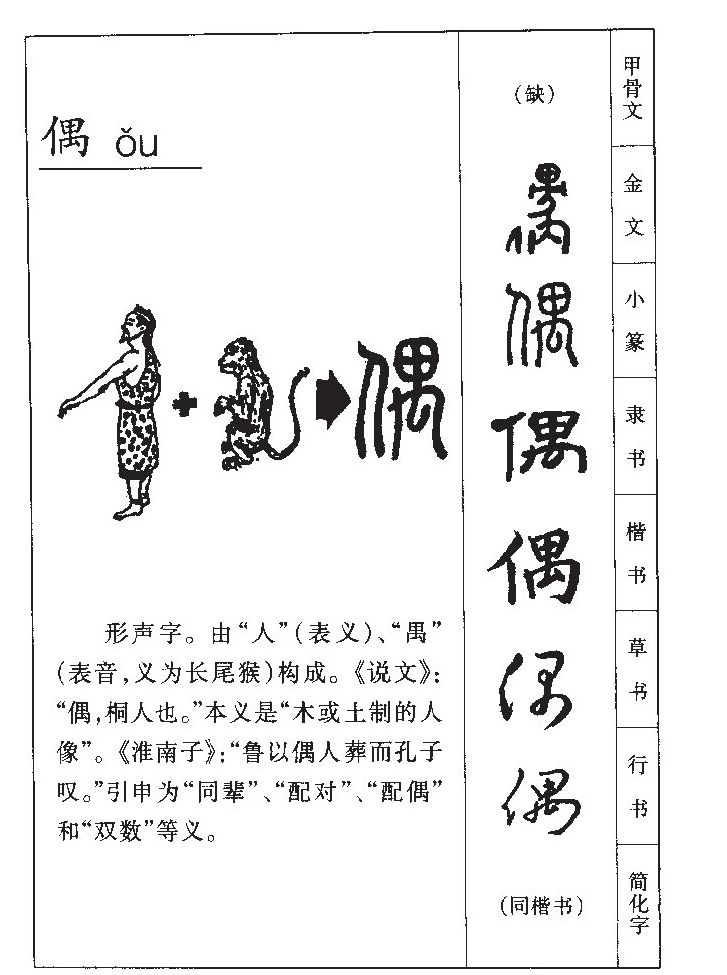 偶 ǒu
偶
形声字。由“人”(表义)、“禺”
(表音,义为长尾猴)构成。《说文》:
“偶,桐人也。”本义是“木或土制的人
像”。《淮南子》:“鲁以偶人葬而孔子
叹。”引申为“同辈”、“配对”、“配偶”
和“双数”等义。
(缺) 甲骨文
偶 金文
偶 小篆
偶 隶书
偶 楷书
偶 草书
偶 行书
(同楷书) 简化字